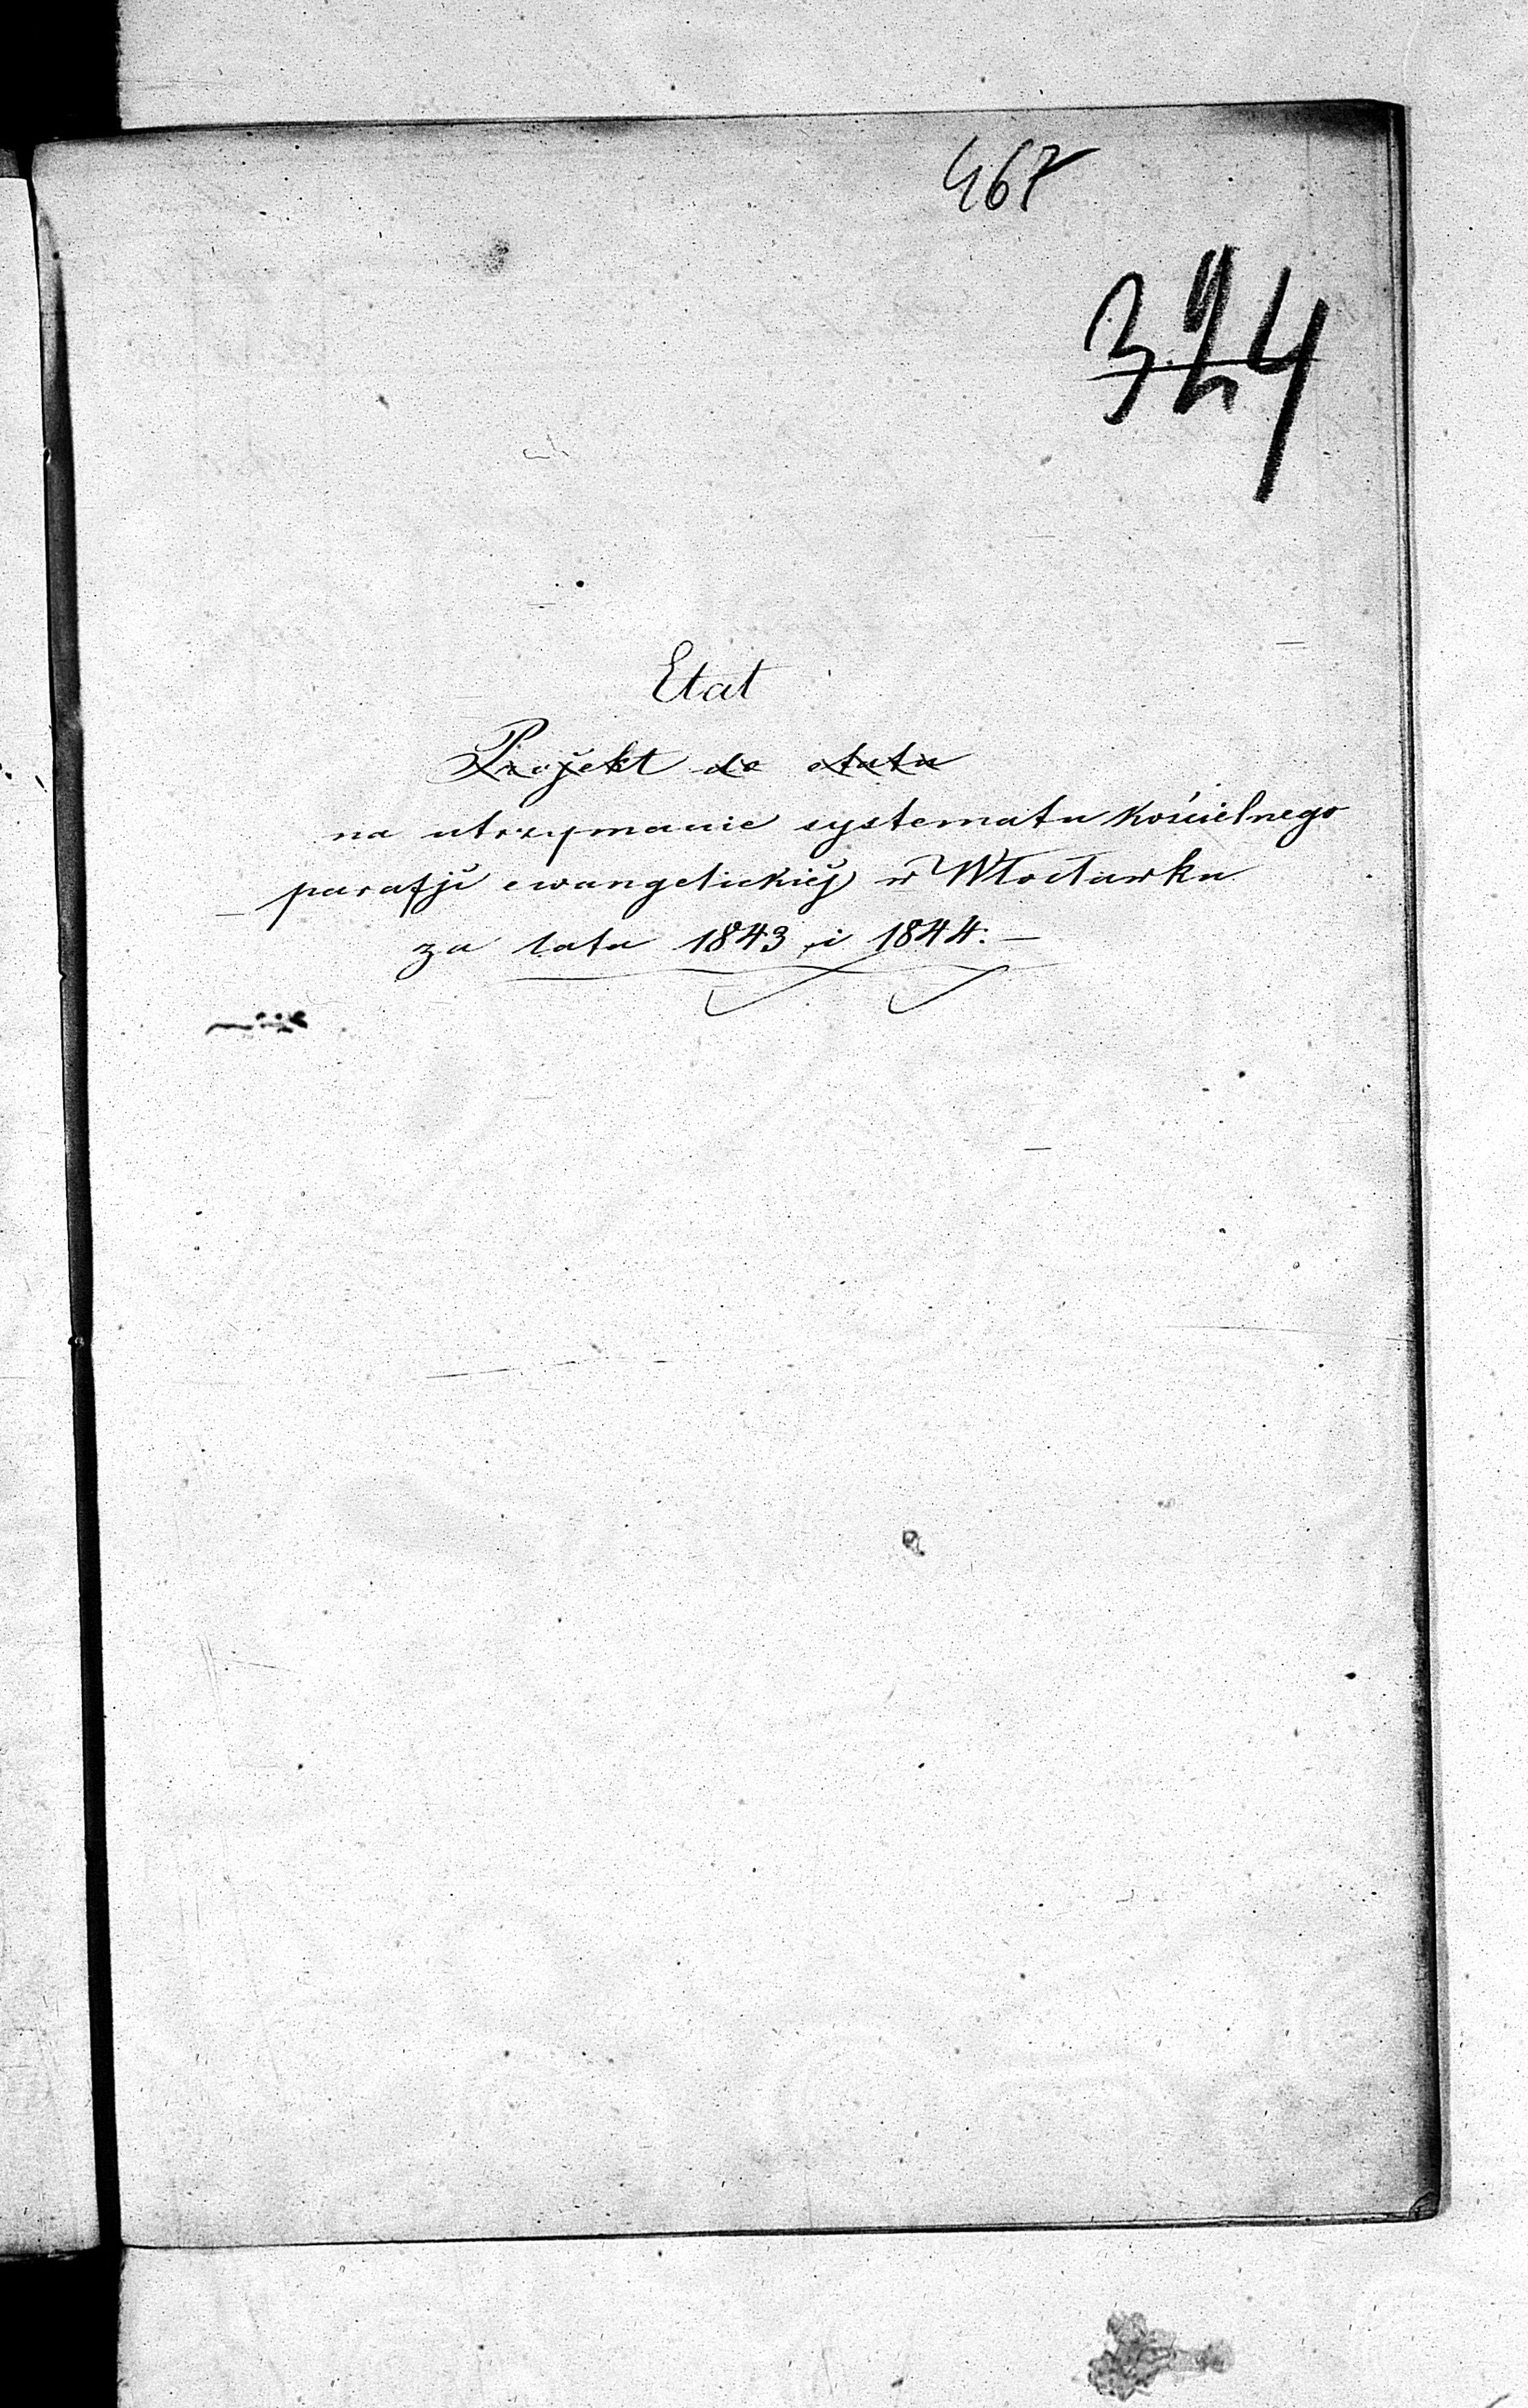 467
324
Etat
Projekt do etatu
na utrzymanie systematu kościelnego
parafji ewangelickiej w Włocławku
za lata 1843 i 1844. —